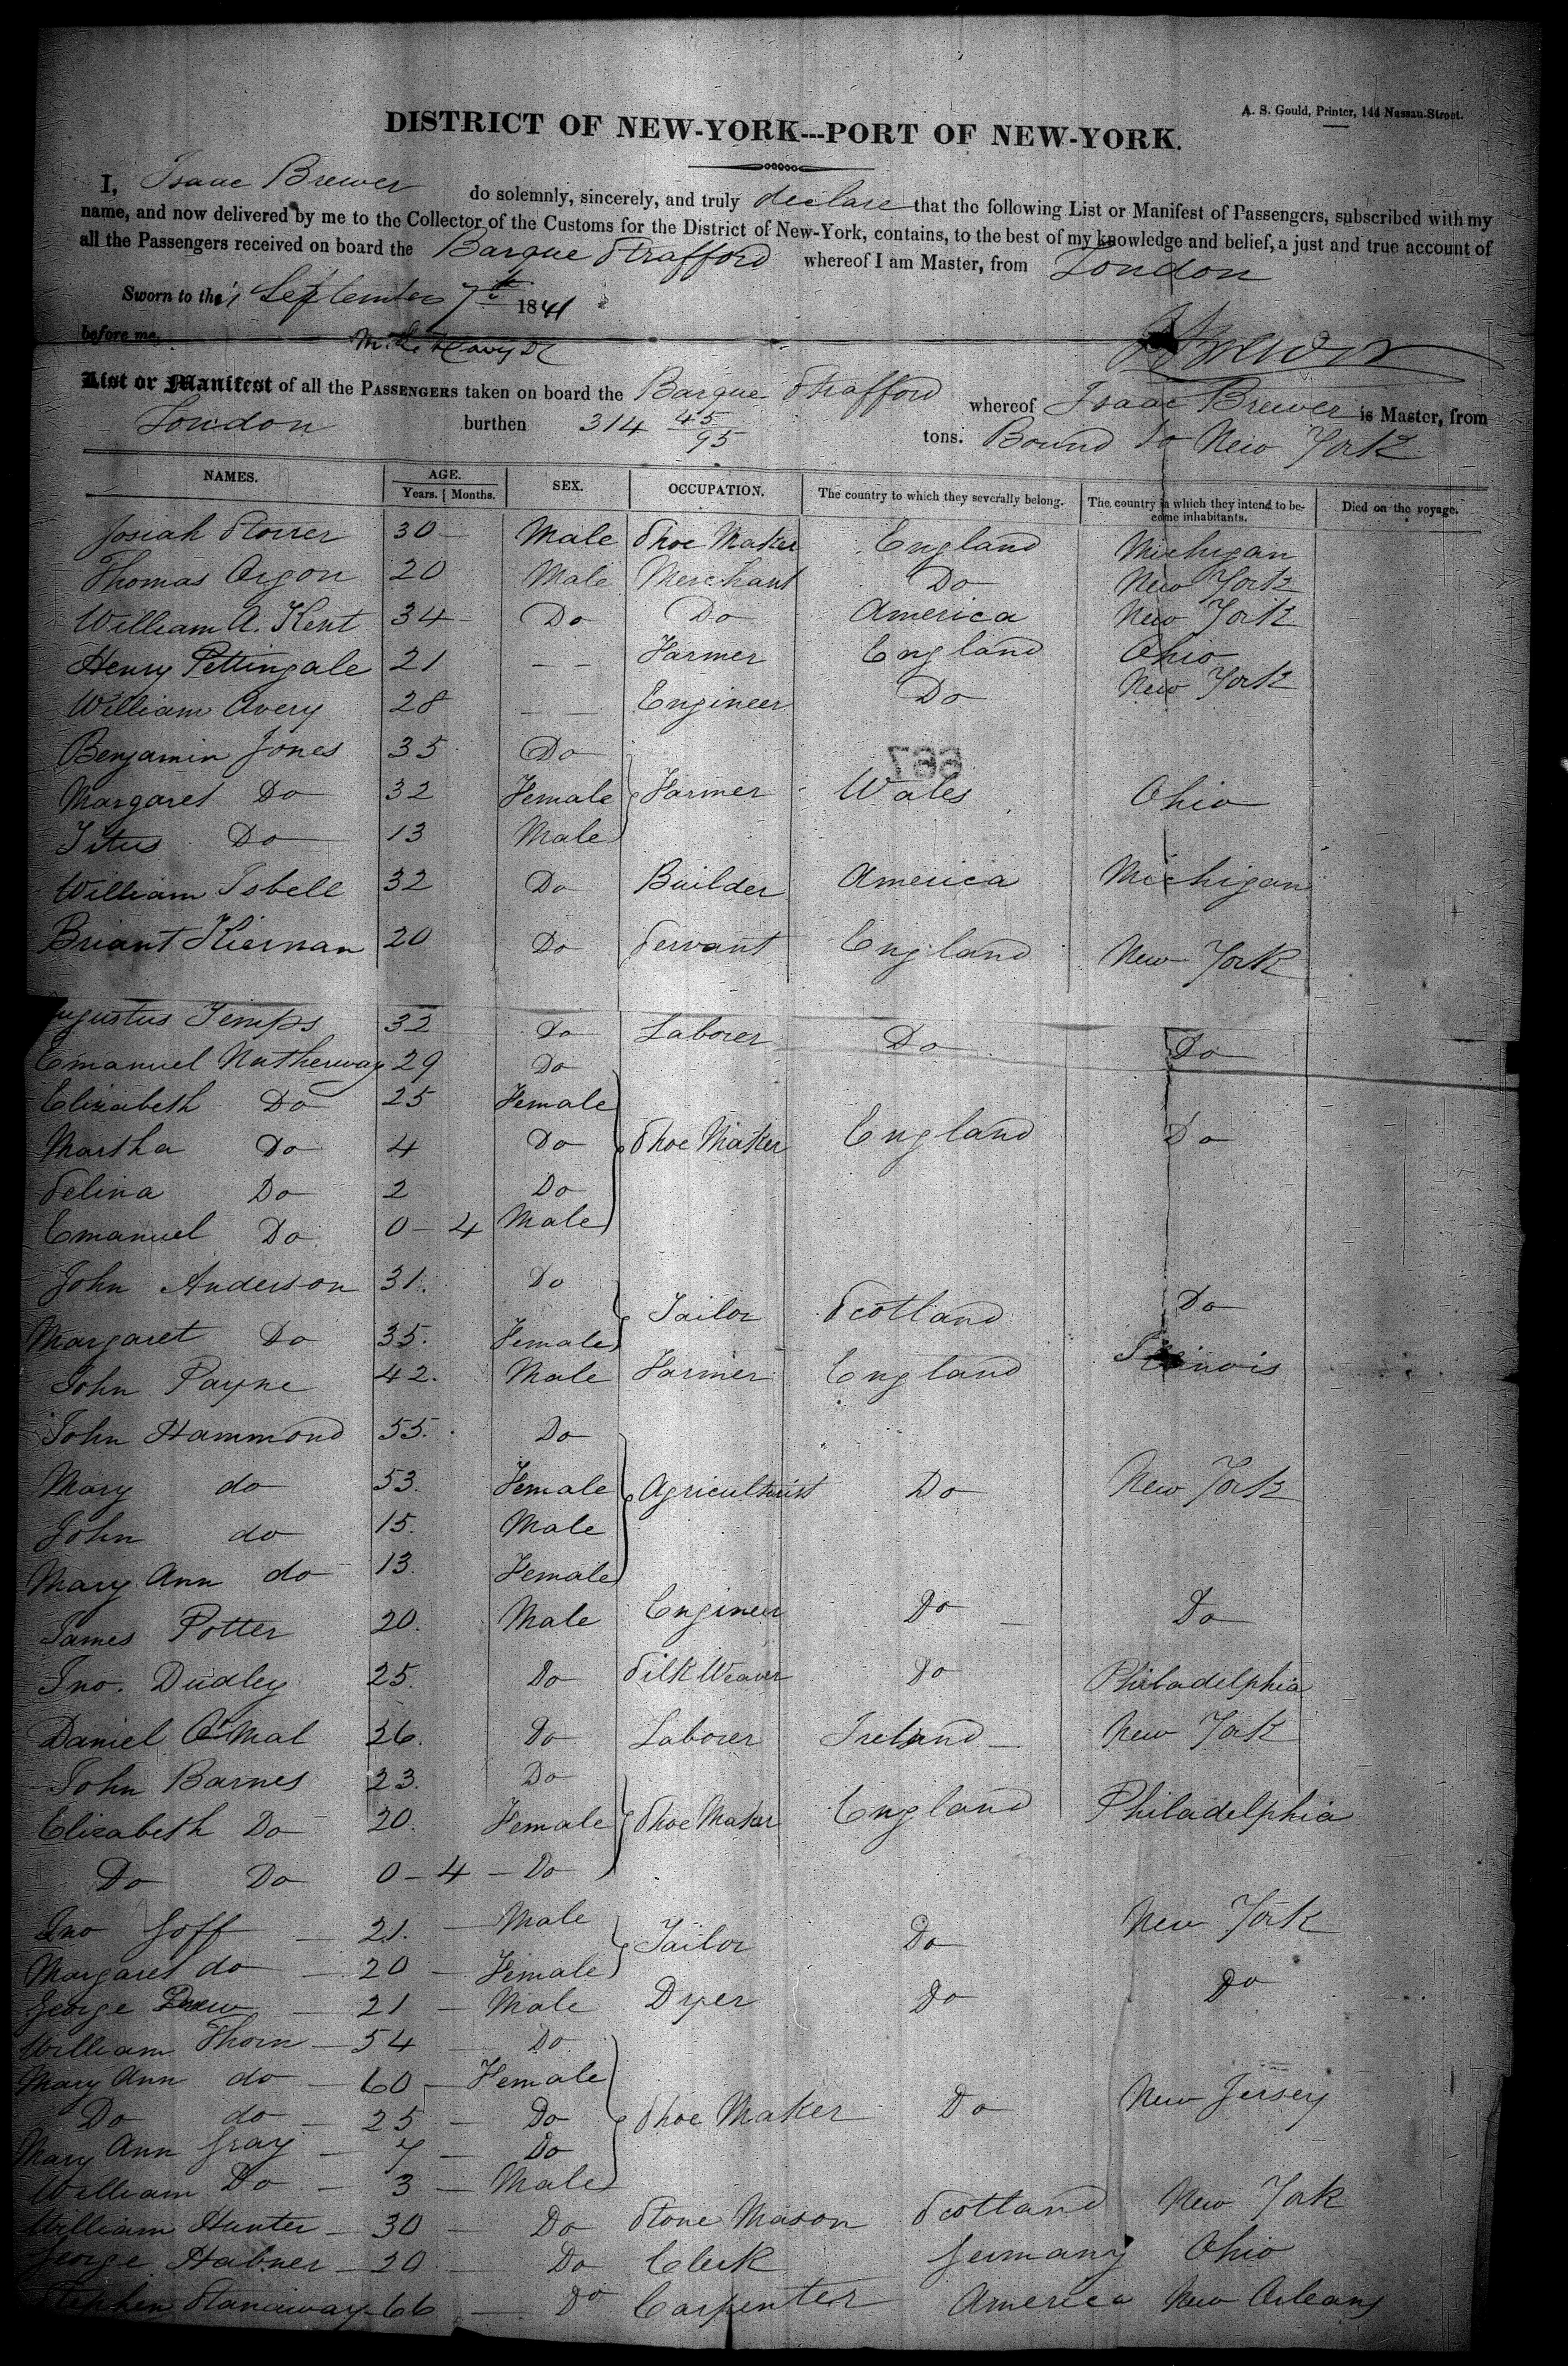 A. S. Gould, Printer, 144 Nassau-Street.
DISTRICT OF NEW-YORK---PORT OF NEW-YORK.
I, Isaac Brewer do solemnly, sincerely, and truly declare that the following List or Manifest of Passengers, subscribed with my
name, and now delivered by me to the Collector of the Customs for the District of New-York, contains, to the best of my knowledge and belief, a just and true account of
all the Passengers received on board the Barque Strafford whereof I am Master, from London
Sworn to this September 7th 1841
before me, I Brewer
List or Manifest of all the PASSENGERS taken on board the Barque Strafford whereof Isaac Brewer is Master, from
London burthen 314 45/95 tons. Bound to New York
NAMES. AGE. Years. Months. SEX. OCCUPATION. The country to which they severally belong. The country in which they intend to become inhabitants. Died on the voyage.
Josiah 30 Male Shoe Maker England Michigan
Thomas Orgon 20 Male Merchant Do New York
William A. Kent 34 Do Do America New York
Henry Pettingale 21 - - Farmer England Ohio
William Avery 28 - - Engineer Do New York
Benjamin Jones 35 Do
667
Margaret Do 32 Female Farmer Wales Ohio
Titus Do 13 Male
William Isbell 32 Do Builder America Michigan
Briant Kiernan 20 Do Servant England New York
Augustus Temps 32 Do Laborer Do Do
Emanuel Natherway 29 Do
Elizabeth Do 25 Female
Martha Do 4 Do Shoe Maker England Do
Selina Do 2 Do
Emanuel Do 0-4 Male
John Anderson 31. Do
Tailor Scotland Do
Margaret Do 35. Female
John Payne 42. Male Farmer England Illinois
John Hammond 55. Do
Mary do 53. Female Agriculturist Do New York
John do 15. Male
Mary Ann do 13. Female
James Potter 20. Male Engineer Do Do
Jno. Dudley 25. Do Silk Weaver Do Philadelphia
Daniel O'Mal 36. Do Laborer Ireland New York
John Barnes 23. Do
Elizabeth Do 20. Female Shoe Maker England Philadelphia
Do Do 0-4 - Do
Jno Goff - 21. - Male Tailor Do New York
Margaret do - 20 - Female
George Drew - 21 - Male Dyer Do Do
William Thorn - 54 - Do
Mary Ann do - 60 - Female
Do do - 25 - Do Shoe Maker Do New Jersey
Mary Ann Gray - 7 - Do
William Do - 3 - Male
William Hunter - 30 - Do Stone Mason Scotland New York
George Habner - 20 - Do Clerk Germany Ohio
Stephen Stanaway - 66 - Do Carpenter America New Orleans